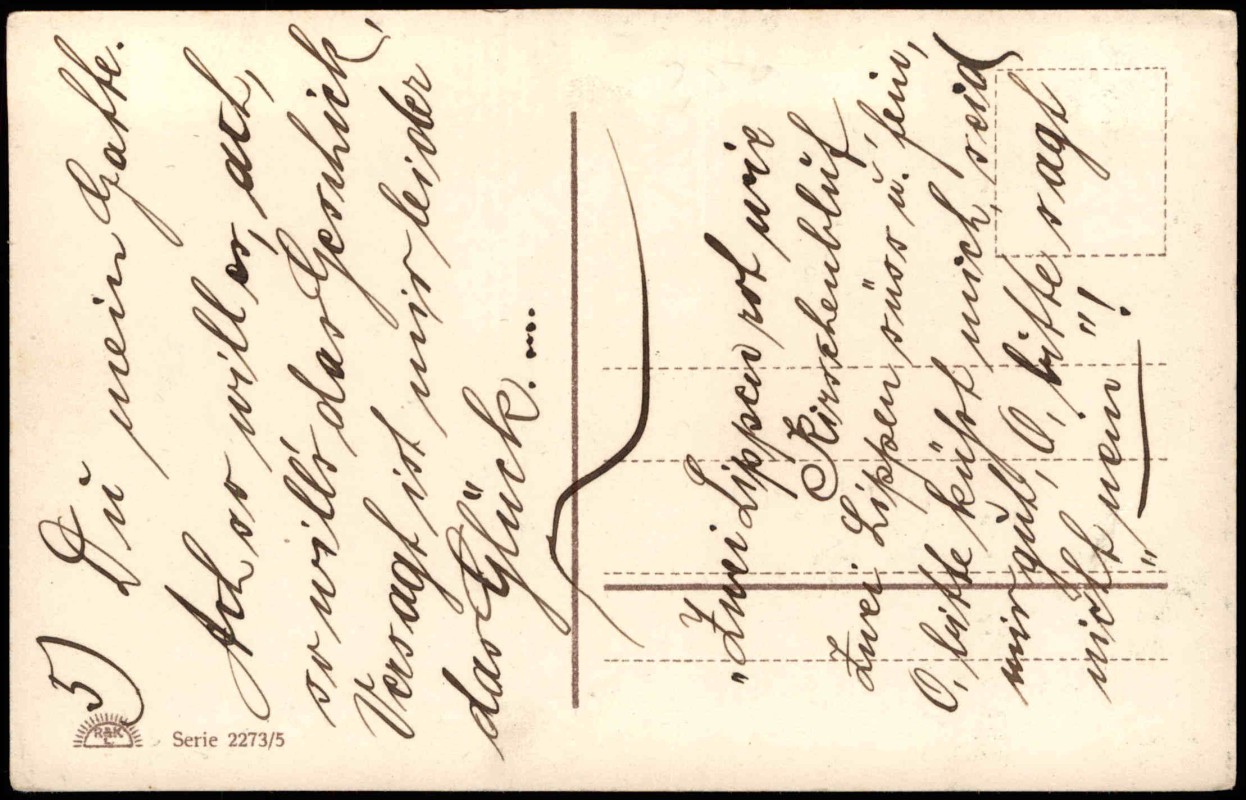 5)
Du mein Gatte.
Ach so will es, ach,
so will's das Geschick,
Versagt ist mir leider
das Glück. ...
"Zwei Lippen rot wie
Kirschenblut
Zwei Lippen süss u. fein,
O, bitte küsst mich, seid
mir gut, O, bitte sagt
nicht "nein"!
R&K
L.
Serie 2273/5